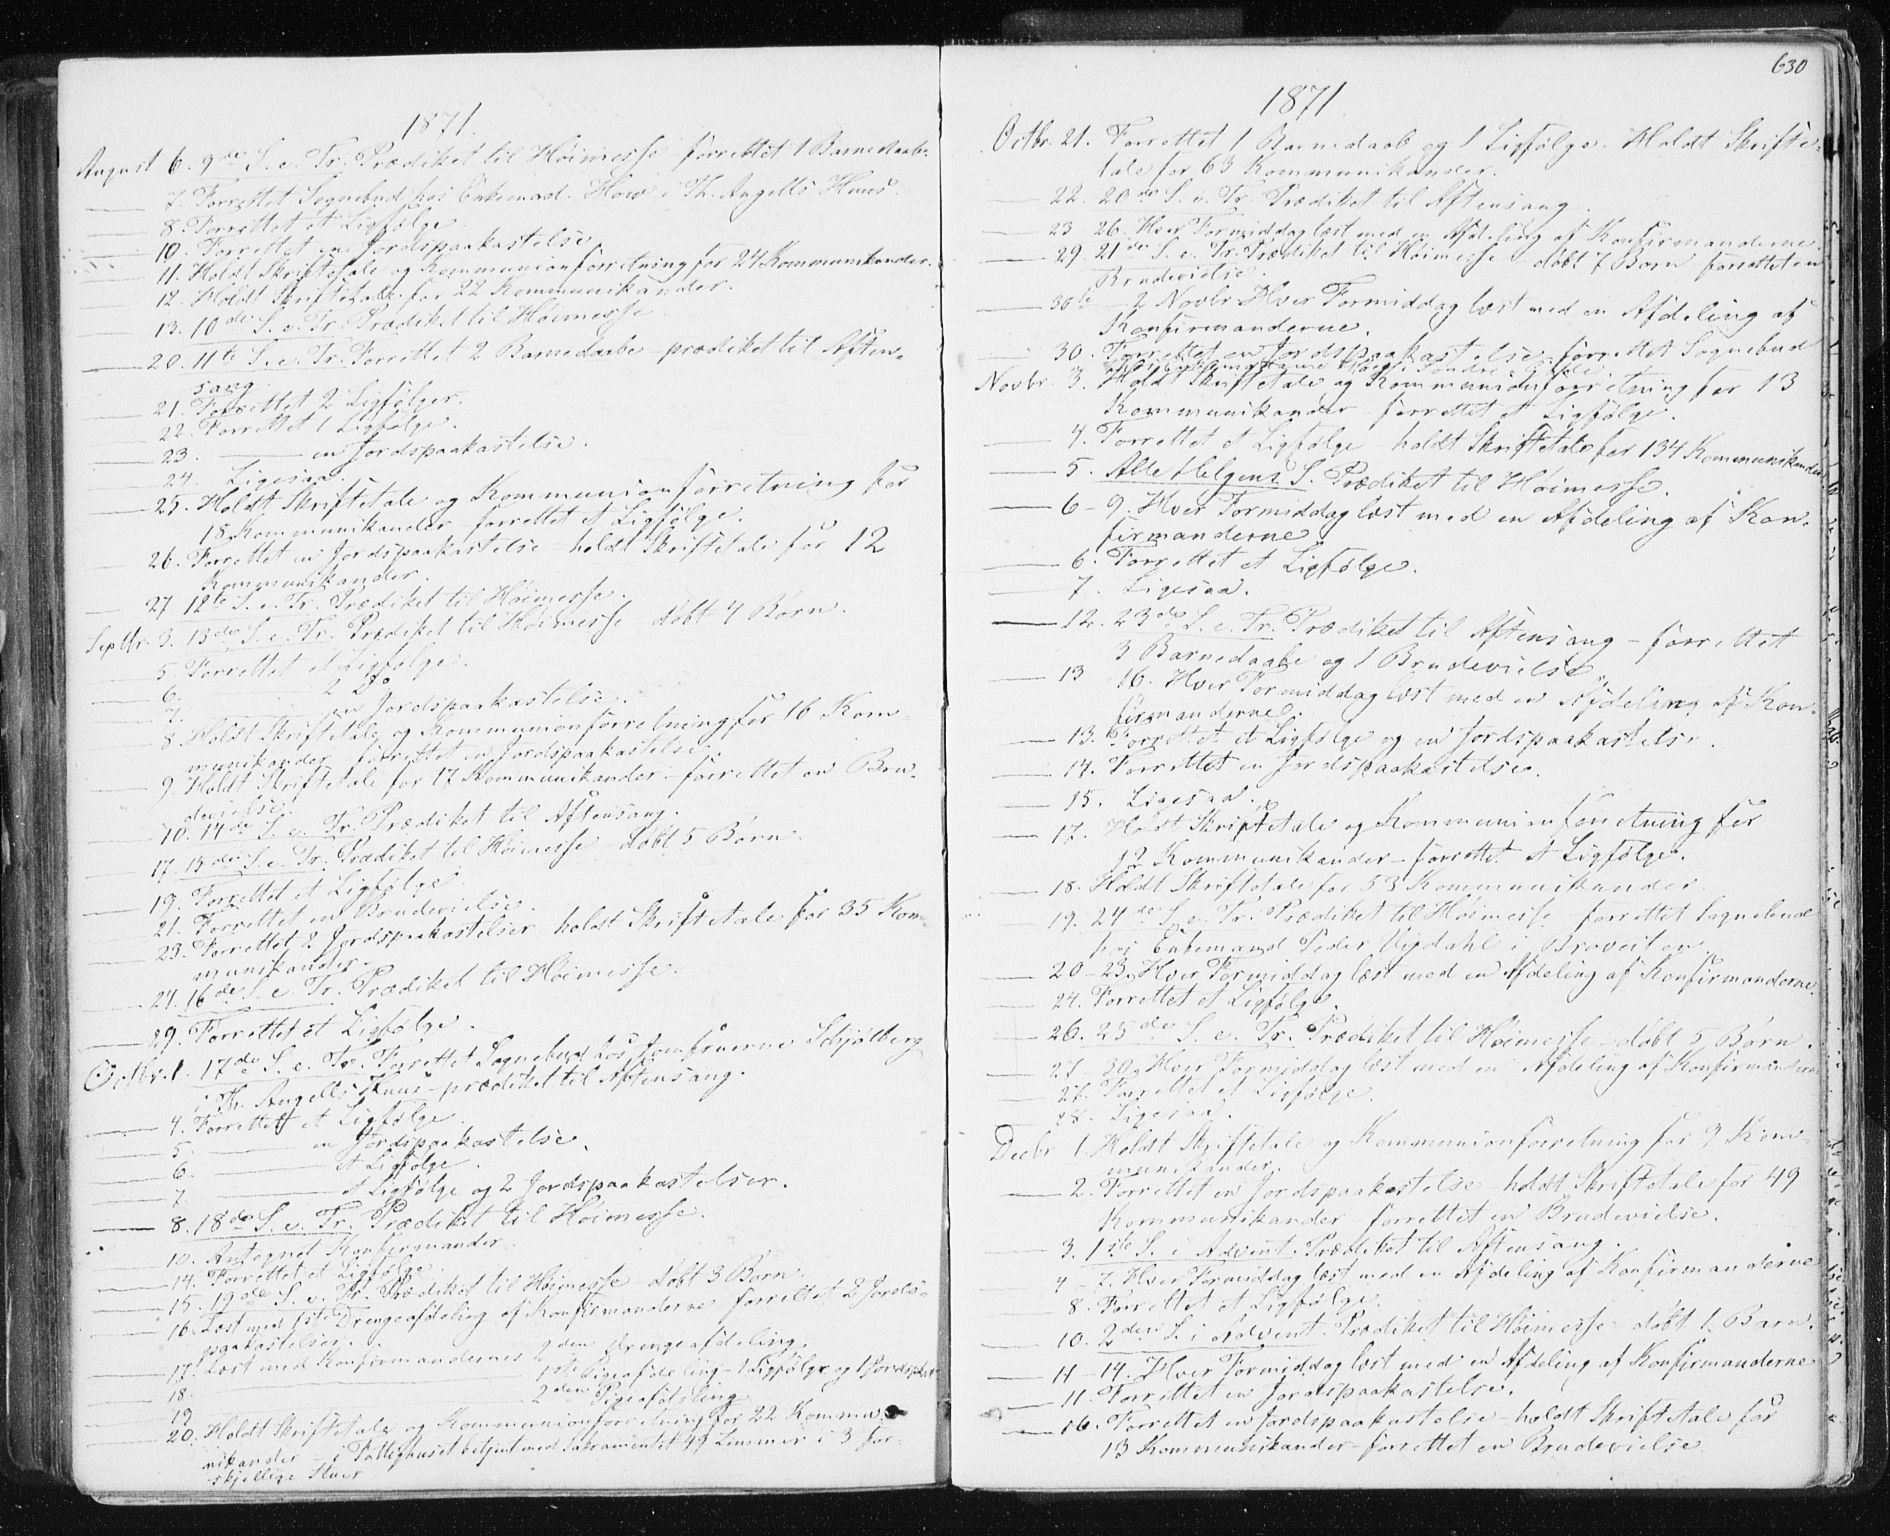 1871.
August 6. 9de S. e. Tr. Prædiket til Høimesse forrettet 1 Barnedaab.
—— 7. Forrettet Sognebud hos Enkemad. How i Th. Angells Huus.
—— 8. Forrettet et Ligfølge.
—— 10. Forrettet en Jordspaakastelse.
11. Holdt Skriftetale og Kommunionforretning for 24 Kommunikander.
—— 12. Holdt Skriftetale for 22 Kommunikander.
—— 13. 10de S. e. Tr. Prædiket til Høimesse.
—— 20. 11te S. e. Tr. Forrettet 2 Barnedaabe – prædiket til Aften-
sang.
—— 21. Forrettet 2 Ligfølger.
—— 22. Forrettet 1 Ligfølge.
—— 23. —— en Jordspaakastelse.
—— 24. Ligesaa.
—— 25. Holdt Skriftetale og Kommunionforretning for
18 Kommunikander – forrettet et Ligfølge.
—— 26. Forrettet en Jordspaakastelse – holdt Skriftetale for 12
Kommunikander.
—— 27. 12te S. e. Tr. Prædiket til Høimesse.
Septbr. 3. 13de S. e. Tr. Prædiket til Høimesse – døbt 4 Børn.
—— 5. Forrettet et Ligfølge.
—— 6. —— 2 Do
—— 7. —— en Jordspaakastelse.
—— 8. Holdt Skriftetale og Kommunionforretning for 16 Kom-
munikander – forrettet en Jordspaakastelse.
—— 9. Holdt Skriftetale for 17 Kommunikander – forrettet en Bru-
devielse.
—— 10. 14de S. e. Tr. Prædiket til Aftensang.
—— 17. 15de S. e. Tr. Prædiket til Høimesse – døbt 5 Børn.
—— 19. Forrettet et Ligfølge.
—— 21. Forrettet en Brudevielse.
—— 23. Forrettet 2 Jordspaakastelser – holdt Skriftetale for 35 Kom-
munikander.
—— 24. 16de S. e. Tr. Prædiket til Høimesse.
—— 29. Forrettet et Ligfølge.
Octbr. 1. 17de S. e. Tr. Forrettet Sognebud hos Jomfruerne Schjølberg
i Th. Angells Huus – prædiket til Aftensang.
—— 4. Forrettet et Ligfølge.
—— 5. —— en Jordspaakastelse.
—— 6. —— et Ligfølge.
—— 7. —— et Ligfølge og 2 Jordspaakastelser.
—— 8. 18de S. e. Tr. Prædiket til Høimesse.
10. Antegnet Konfirmander.
—— 14. Forrettet et Ligfølge.
—— 15. 19de S. e. Tr. Prædiket til Høimesse – døbt 3 Børn.
—— 16. Læst med 1ste Drengeafdeling af Konfirmanderne – forrettet 2 Jords-
paakastelser.
—— 17. Læst med Konfirmandernes 2den Drengeafdeling.
—— 18. —— 1ste Pigeafdeling – 1 Ligfølge og 1 Jordspkst.
—— 19. —— 2den Pigeafdeling
—— 20. Holdt Skriftetale og Kommunionforretning for 22 Kommu-
nikander – i Fattighuset betjent med Sakramentet 47 Lemmer i 3 for-
skjellige Stuer
630
1871
Octbr. 21. Forrettet 1 Barnedaab og 1 Ligfølge. Holdt Skrifte-
tale for 63 Kommunikander.
—— 22. 20de S. e. Tr. Prædiket til Aftensang.
—— 23 26. Hver Formiddag læst med en Afdeling af Konfirmanderne.
—— 29. 21de S. e. Tr. Prædiket til Høimesse – døbt 7 Børn – forrettet en
Brudevielse.
—— 30te – 2 Novbr. Hver Formiddag læst med en Afdeling af
Konfirmanderne.
—— 30. Forrettet en Jordspaakastelse – forrettet Sognebud
Novbr. 3. Holdt Skriftetale og Kommunionforretning for 13
Kommunikander – forrettet et Ligfølge.
—— 4. Forrettet et Ligfølge – holdt Skriftetale for 134 Kommunikander
—— 5. Alle Helgens S. Prædiket til Høimesse.
—— 6 – 9. Hver Formiddag læst med en Afdeling af Kon-
firmanderne
—— 6. Forrettet et Ligfølge.
—— 7. Ligesaa.
—— 12. 23de S. e. Tr. Prædiket til Aftensang – forrettet
3 Barnedaabe og 1 Brudevielse.
—— 13 16. Hver Formiddag læst med en Afdeling af Kon-
firmanderne.
—— 13. Forrettet et Ligfølge og en Jordspaakastelse.
—— 14. Forrettet en Jordspaakastelse.
—— 15. Ligesaa.
—— 17. Holdt Skriftetale og Kommunionforretning for
12 Kommunikander – forrettet et Ligfølge.
—— 18. Holdt Skriftetale for 53 Kommunikander.
—— 19. 24de S. e. Tr. Prædiket til Høimesse – forrettet Sognebud
hos Enkemand Peder Vigdahl i Broveiten.
—— 20 – 23. Hver Formiddag læst med en Afdeling af Konfirmanderne.
—— 24. Forrettet et Ligfølge.
—— 26. 25de S. e. Tr. Prædiket til Høimesse – døbt 5 Børn.
—— 27 – 30. Hver Formiddag læst med en Afdeling af Konfirmanderne
—— 27. Forrettet et Ligfølge.
—— 28. Ligesaa.
Decbr 1. Holdt Skriftetale og Kommunionforretning for 9 Kom-
munikander.
—— 2. Forrettet en Jordspaakastelse – holdt Skriftetale for 49
Kommunikander – forrettet en Brudevielse.
—— 3. 1ste S. i Advent. Prædiket til Aftensang.
—— 4 – 7. Hver Formiddag læst med en Afdeling af Konfirmanderne
—— 8. Forrettet et Ligfølge.
—— 10. 2den S. i Advent. Prædiket til Høimesse – døbt 1 Barn.
—— 11 – 14. Hver Formiddag læst med en Afdeling af Konfirmanderne
—— 11. Forrettet en Jordspaakastelse.
—— 16. Forrettet en Jordspaakastelse – holdt Skriftetale for
13 Kommunikander – forrettet en Brudevielse.